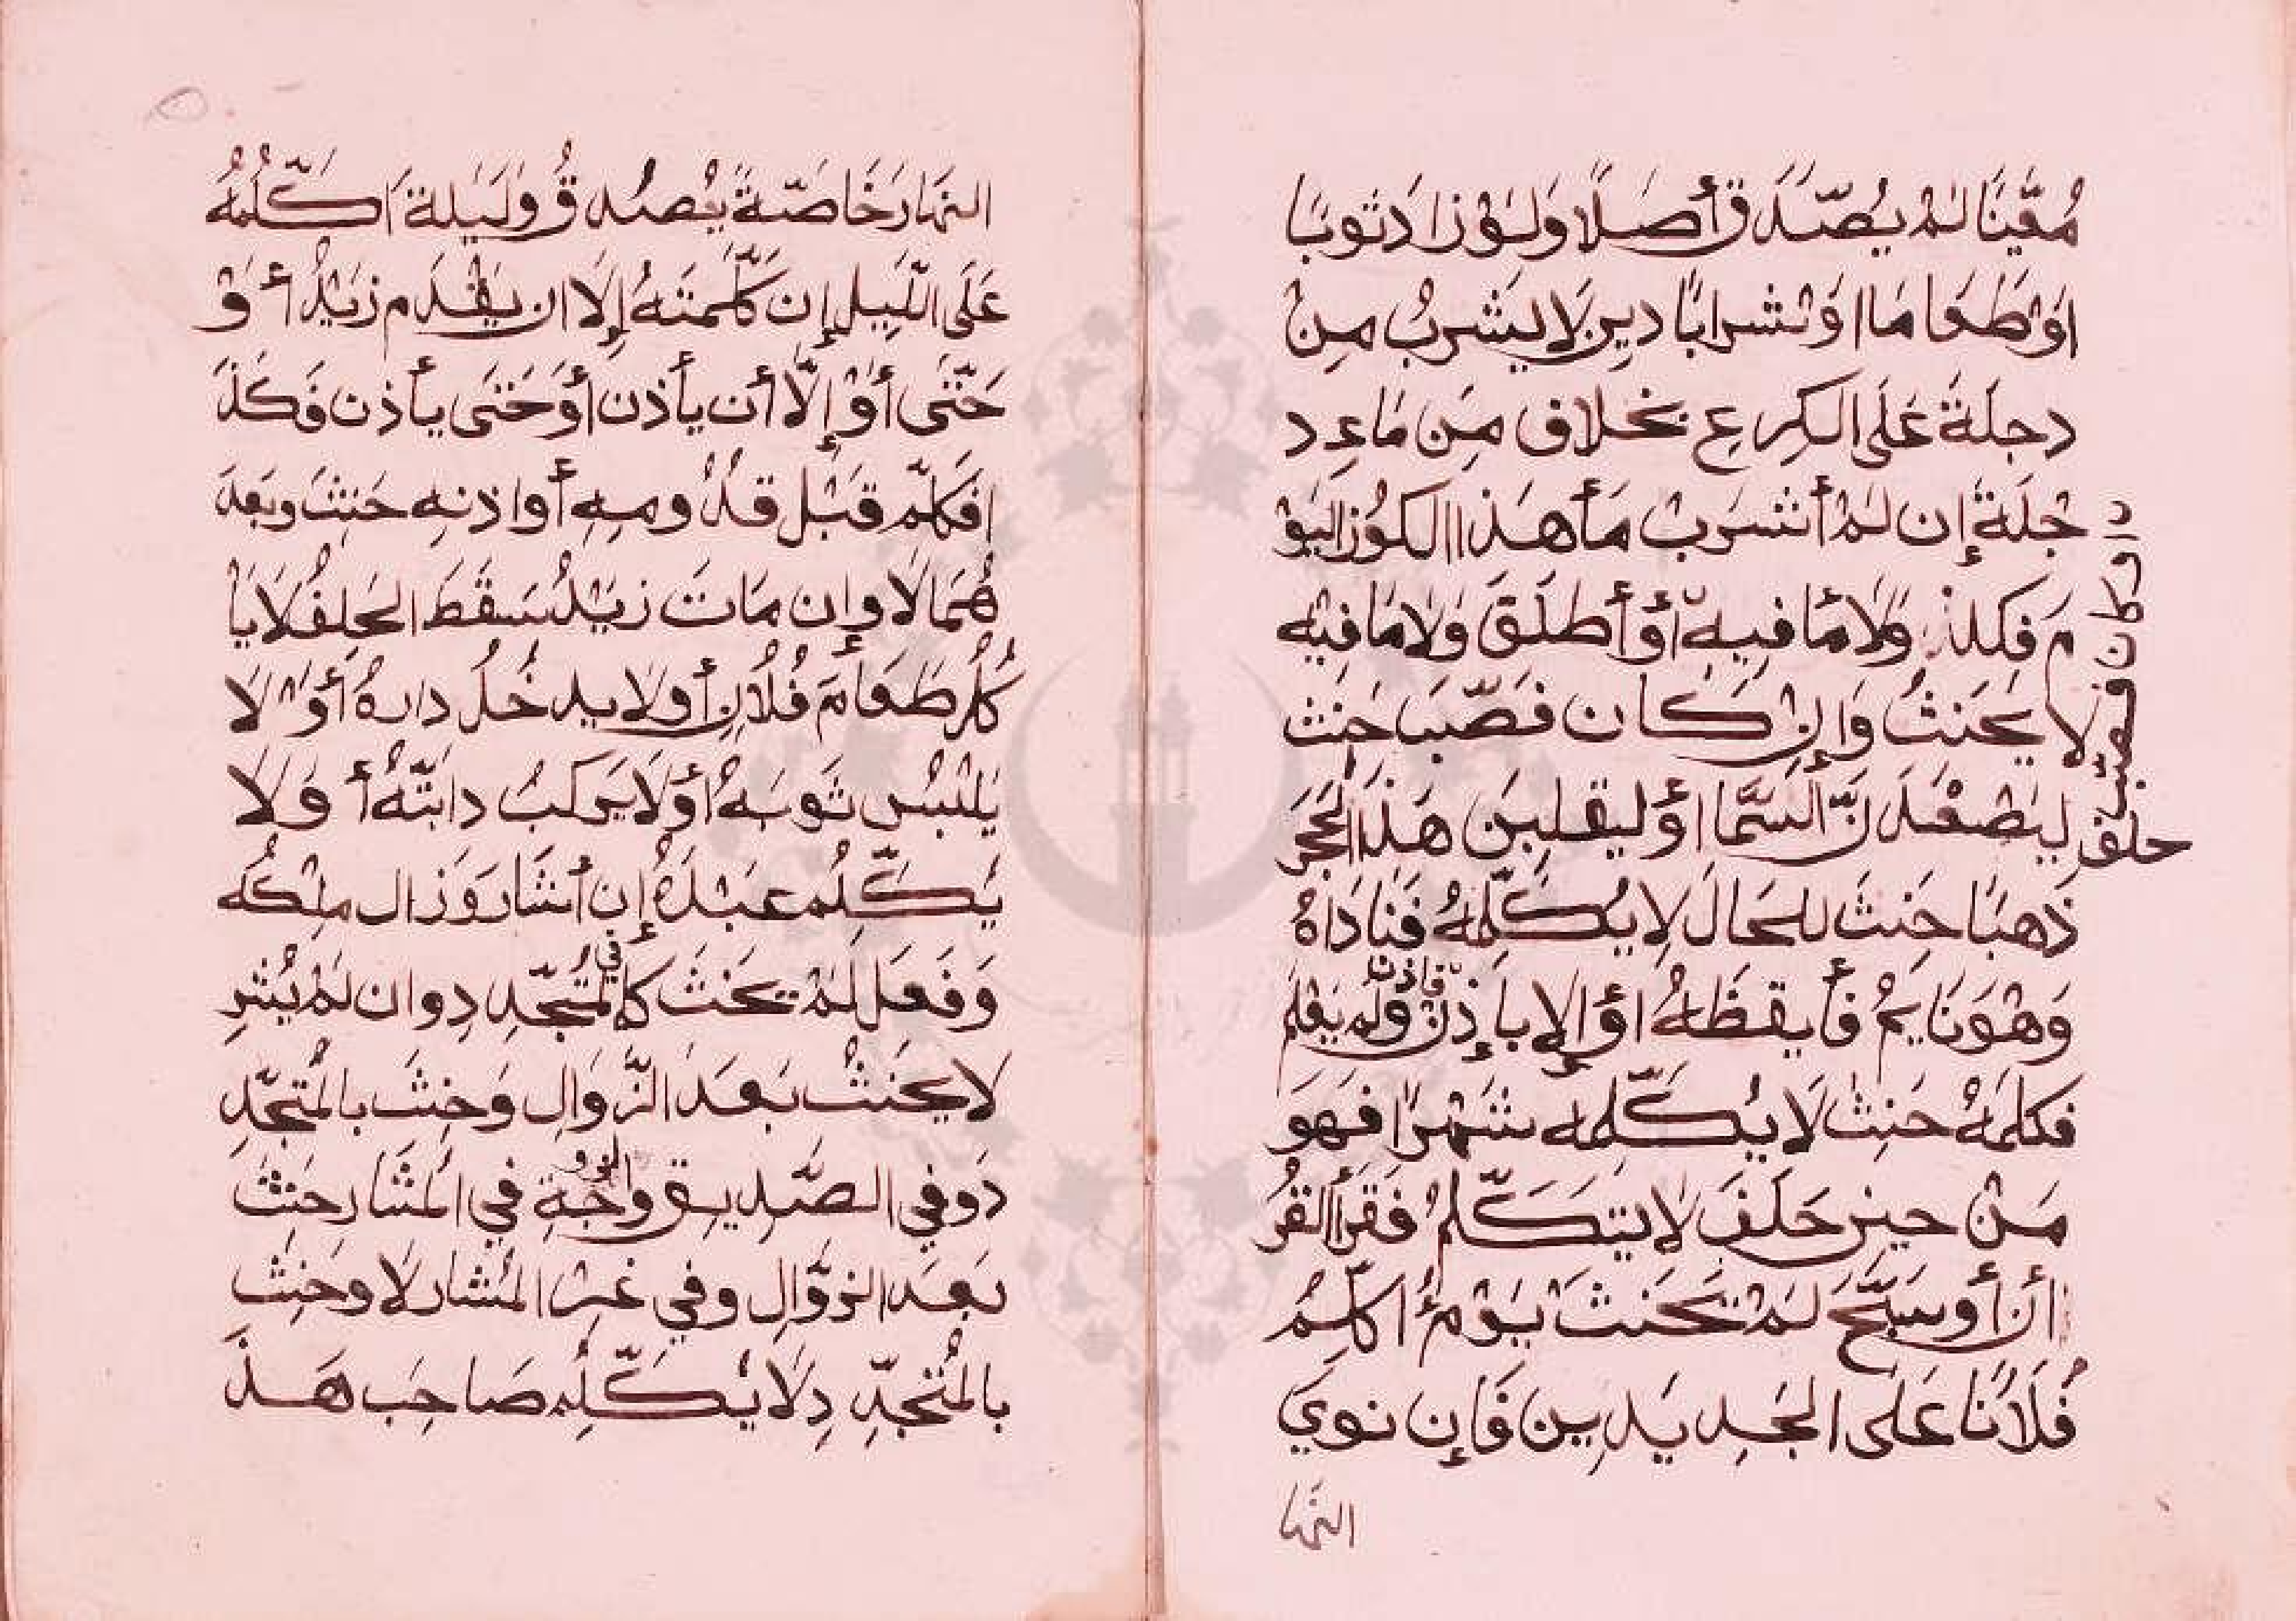 مُعَيَّنًا لَمْ يُصَدَّق أصَلًا وَلَوْ زادَ ثَوبًا
اوْ طَعَامَا اوْ شرابًا دين لا يشربُ مِنْ
دجلَةَ عَلَى الكرع بخلاف مِن مَاءِ د
جْلَةَ إن لَمْ أشرَبْ مَأ هَذا الكوُز اليَوْ
مَ فكذا وَلا مَا فيهِ أوْ أطلَقَ وَلا مَا فيْه
لا يَحَنثُ وَإِنْ كَان فصَبَّ حَنِث
او كان فصب
حلف ليَصْعَدَنَّ السَّمَا اوْ ليقلبن هَذا الحجَرَ
ذَهَبًا حَنِثَ للحَال لا يُكَلِّمُهُ فَنَادَاهُ
وَهْوَ نَايمُ فأيقظَهُ اوْ إلا بإذن ولم يَعْلَم
فاذن
فكلمَهُ حَنِثَ لَا يُكَلِّمه شَهْرًا فهَو
مَنْ حين حَلَفَ لا يتكَلَّمُ فَقَرَأ القُر
أن أو سَبَّحَ لَمْ تَحَنث يَوْمُ اكلِّمُ
فُلَانًا عَلى الجَدِيدَين فَإن نوي
النهَا
النهَارَ خَاصَّةً يُصَدقُ وليَلة اكَلِّمُهُ
عَلَى اللَّيل إن كلَّمتَهُ إلَا ان يَقْدَم زيَدُ أوْ
حَتَّى أوْ إلَّا أن يأذن أوَ حَتَى يأذن فَكَذَ
افَكلَّم قبَل قدُومِهِ أو اذنهِ حَنِثَ وبَعدَ
هُمَا لَا وإن مَاتَ زيَدُ سَقَطَ الحَلِفُ لَا يأ
كُلُ طَعَامَ فُلَانٍ أو لا يدخُلُ دارهُ أوْ لا
يَلْبَسُ ثَوبَهُ أوْ لَا يَركبُ دابتَّهُ أوَ لا
يَكلِّمُ عبْدَهُ إن أشَارَ وَزال مِلْكُه
وَفَعَل لَمْ تحَنَثَ كما في المُتَجَدِّدِ وان لَمْ يُشِر
لا يحَنثُ بَعدَ الزَّوَالِ وَحَنِثَ بالمُتَجَدِّ
دَ وفي الصَّدِيق والزوجَةِ في المُشَارِ حَنِثَ
بَعدَ الزَّوَالِ وفي غير المُشار لا وحَنِثَ
بالمُتَجدِّدِ لَا يُكَلِّمُ صَاحِبَ هَذَ